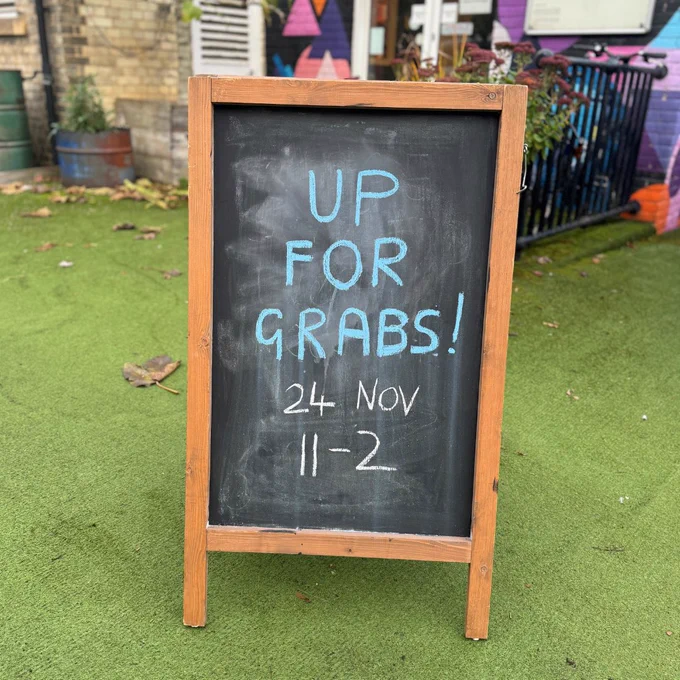 UP
FOR
GRABS!
24 NOV
11-2